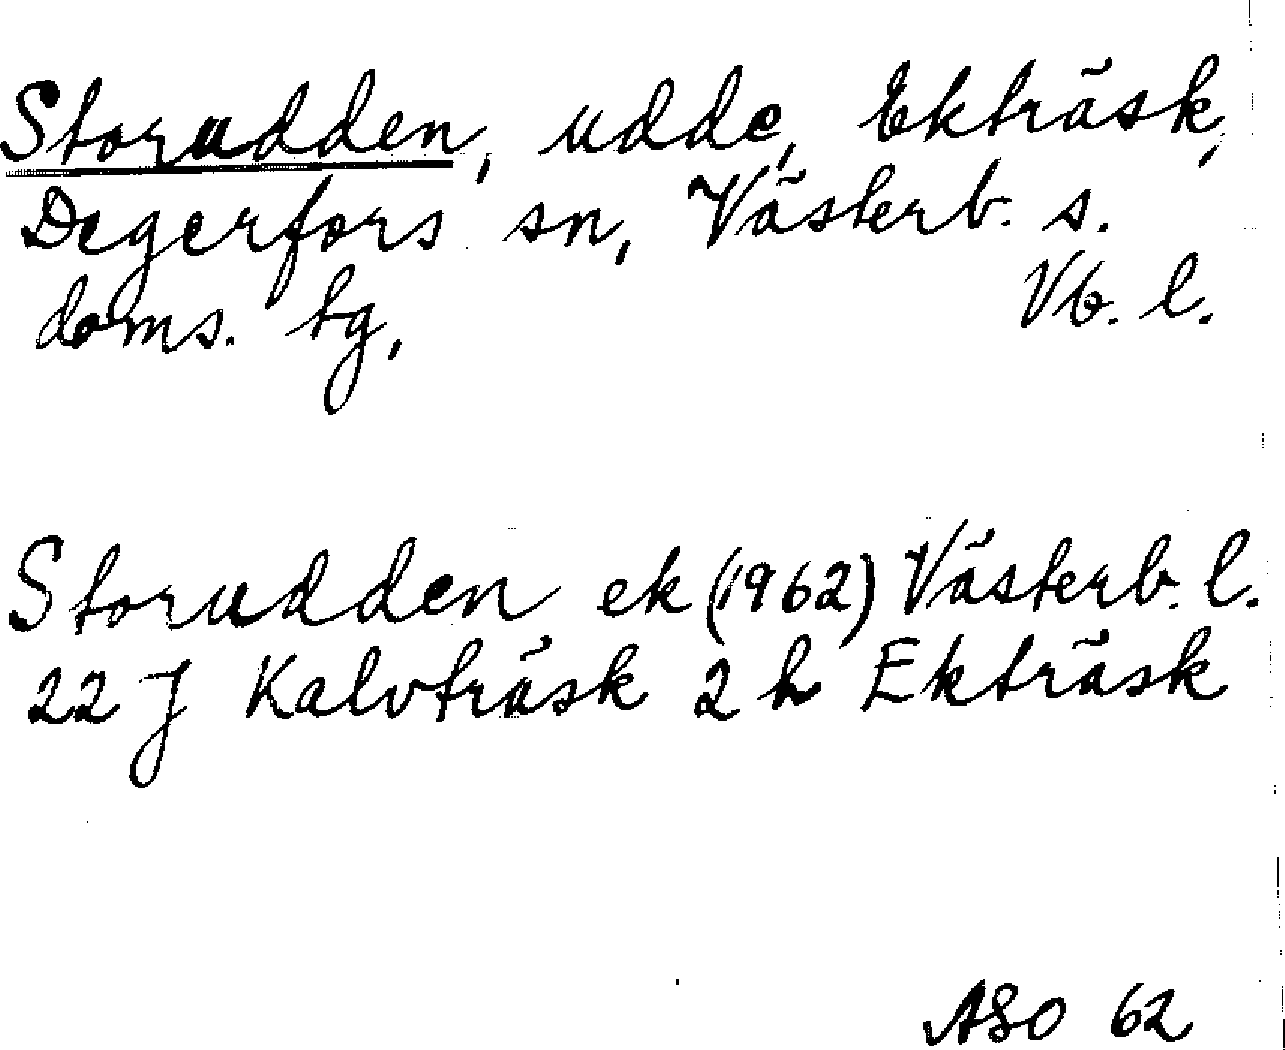 Storudden, udde, Ekträsk,
Degerfors sn, Västerb. s.
doms. tg, Vb. l.
Storudden ek (1962) Västerb. l.
22 J Kalvträsk 2 h Ekträsk
ASO 62